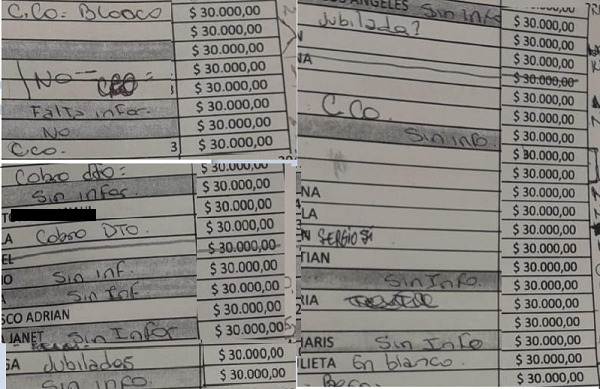 C.Co: Blanco $ 30.000,00
$ 30.000,00
$ 30.000,00
No $ 30.000,00
$ 30.000,00
Falta infor. $ 30.000,00
No $ 30.000,00
C.co. 3 $ 30.000,00
Cobro dto: $ 30.000,00
Sin infor. $ 30.000,00
$ 30.000,00
A Cobro DTO. $ 30.000,00
EL $ 30.000,00
O Sin inf. $ 30.000,00
Sin Inf. $ 30.000,00
SCO ADRIAN $ 30.000,00
JANET Sin Infor $ 30.000,00
GA Jubilados $ 30.000,00
Sin info $ 30.000,00
ANGELES Sin Info
Jubilada? $ 30.000,00
$ 30.000,00
NA $ 30.000,00
$ 30.000,00
C.Co. $ 30.000,00
$ 30.000,00
Sin info. $ 30.000,00
$ 30.000,00
$ 30.000,00
NA $ 30.000,00
LA $ 30.000,00
N SERGIO $ 30.000,00
TIAN $ 30.000,00
Sin Info. $ 30.000,00
RIA $ 30.000,00
$ 30.000,00
HARIS Sin Info $ 30.000,00
LIETA En blanco. $ 30.000,00
$ 30.000,00